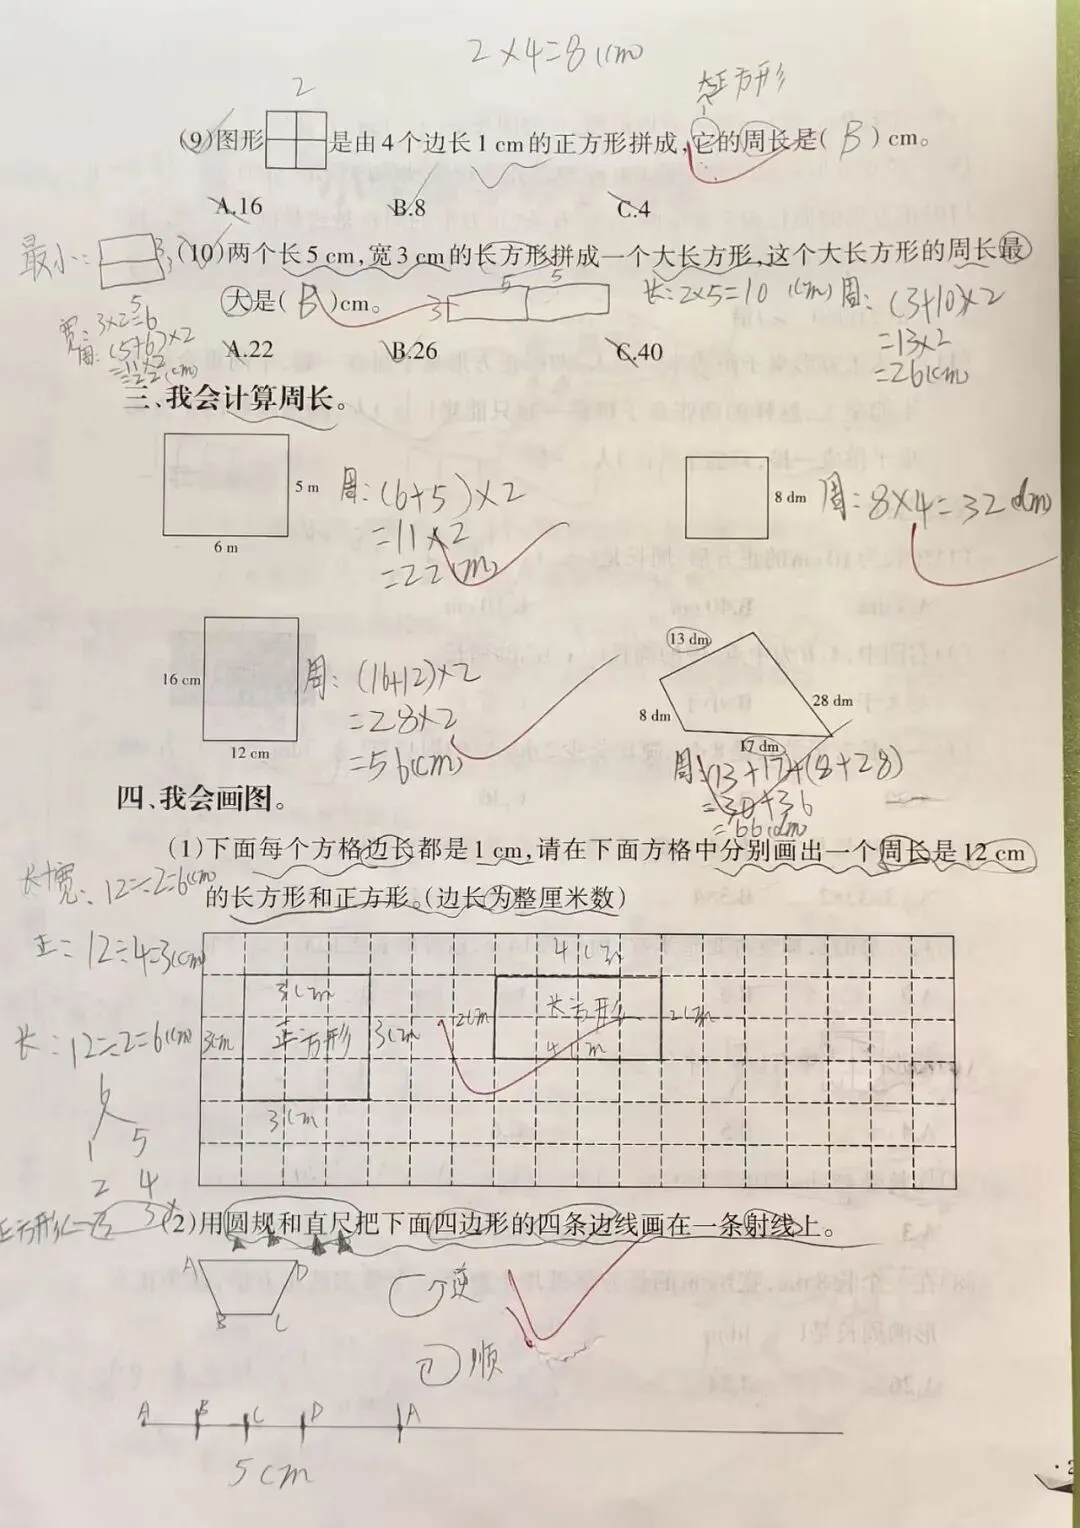 2×4=8(cm)
2
大正方形
(9)图形 是由4个边长1 cm的正方形拼成,它的周长是( B ) cm。
A.16 B.8 C.4
最小: 3 3 5
(10)两个长5 cm,宽3 cm的长方形拼成一个大长方形,这个大长方形的周长最
大是( B )cm。
3 5 5
长:2×5=10 (cm) 周: (3+10)×2
=13×2
=26(cm)
宽: 3×2=6
周: (5+6)×2
=11×2
=22(cm)
A.22 B.26 C.40
三、我会计算周长。
5 m
6 m
周: (6+5)×2
=11×2
=22(m)
8 dm
周: 8×4=32(dm)
16 cm
12 cm
周: (16+12)×2
=28×2
=56(cm)
13 dm
28 dm
8 dm
17 dm
周: 13+17+(8+28)
=30+36
=66(dm)
四、我会画图。
(1)下面每个方格边长都是1 cm,请在下面方格中分别画出一个周长是12 cm
的长方形和正方形。(边长为整厘米数)
长+宽: 12÷2=6(cm)
正: 12÷4=3(cm)
长: 12÷2=6(cm)
6
1 5
2 4
3 3
正方形
3cm
3cm 正方形 3cm
3cm
4cm
2cm 长方形 2cm
4cm
(2)用圆规和直尺把下面四边形的四条边线画在一条射线上。
A D
B C
逆
顺
A B C D A
5cm